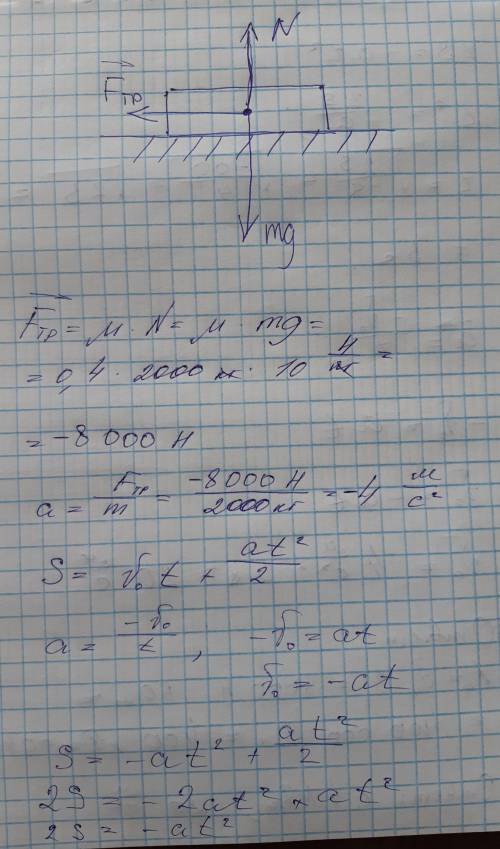 N
F тр
mg
Fтр = μ · N = μ · mg =
= 0,4 · 2000 кг · 10 Н/кг =
= -8 000 Н
a = Fтр/m = -8000 Н/2000 кг = -4 м/с²
S = v₀ t + at²/2
a = -v₀/t , -v₀ = at
v₀ = -at
S = -at² + at²/2
2S = -2at² + at²
2S = -at²